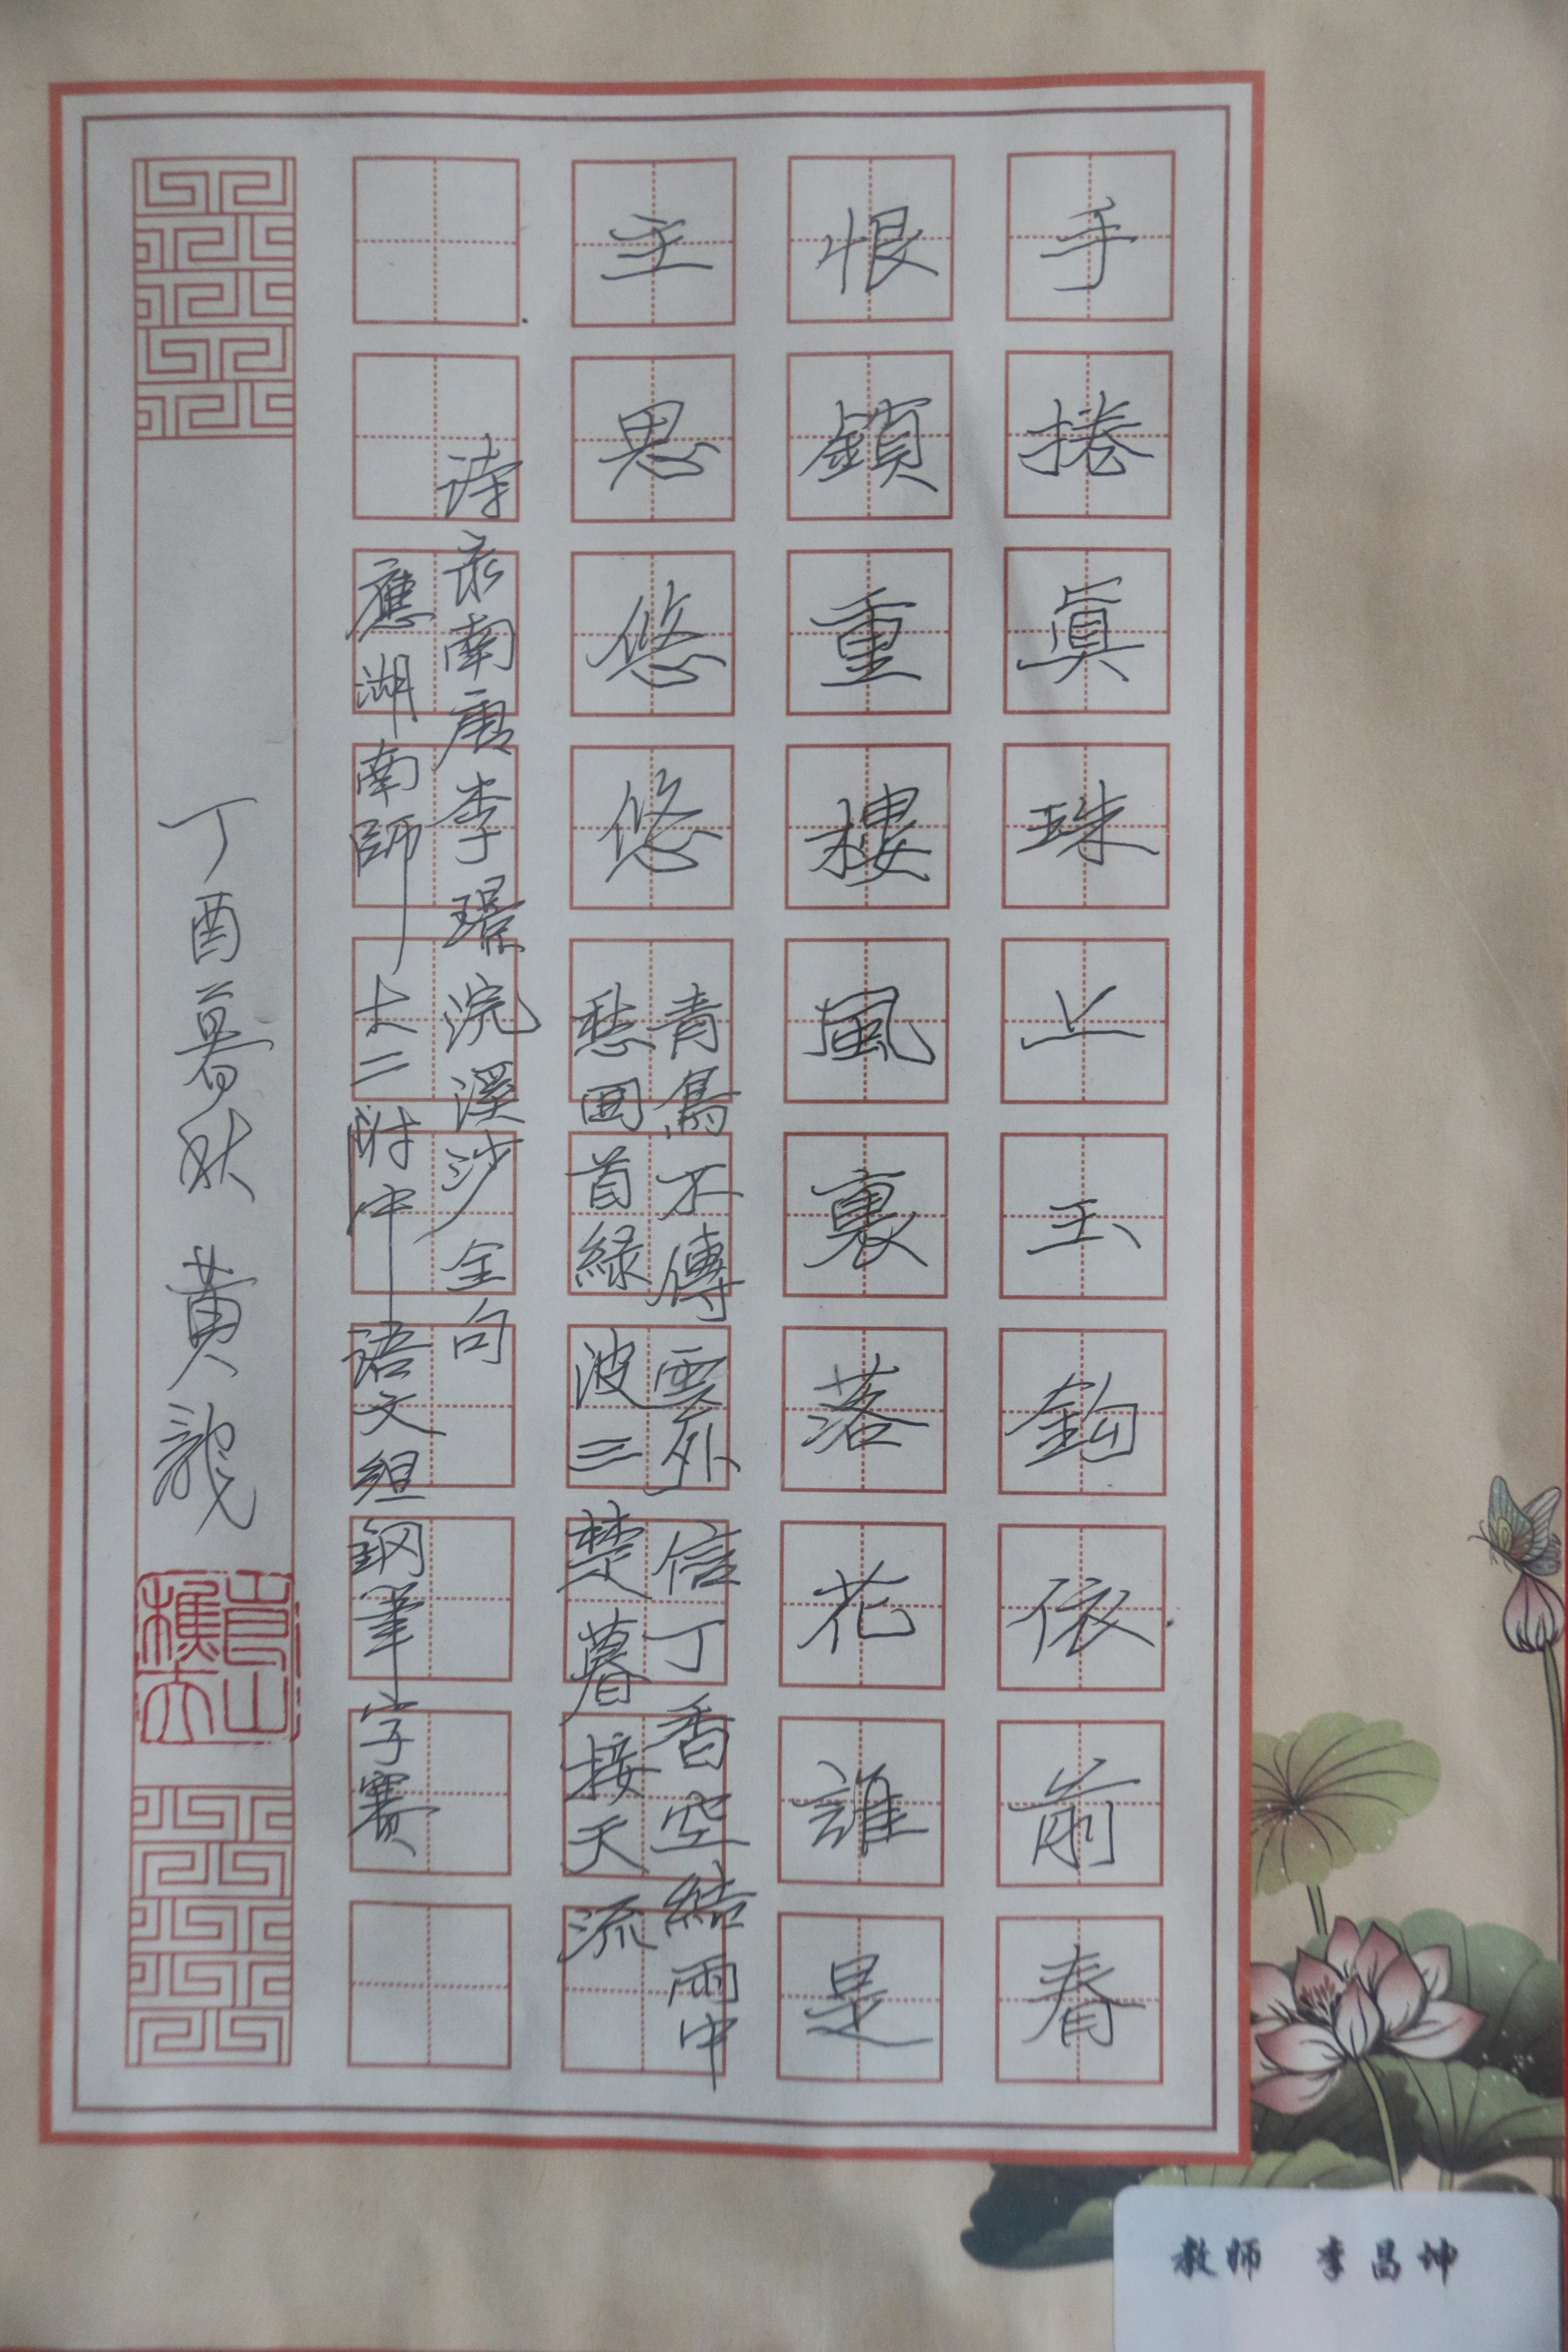 手捲眞珠上玉鈎依前春
恨鎖重樓風裏落花誰是
主思悠悠
青鳥不傳雲外信丁香空結雨中
愁回首緑波三楚暮接天流
诗录南唐李璟浣溪沙全句
應湖南師大二附中语文组钢筆字赛
丁酉暮秋 黄龍
教师 李昌坤